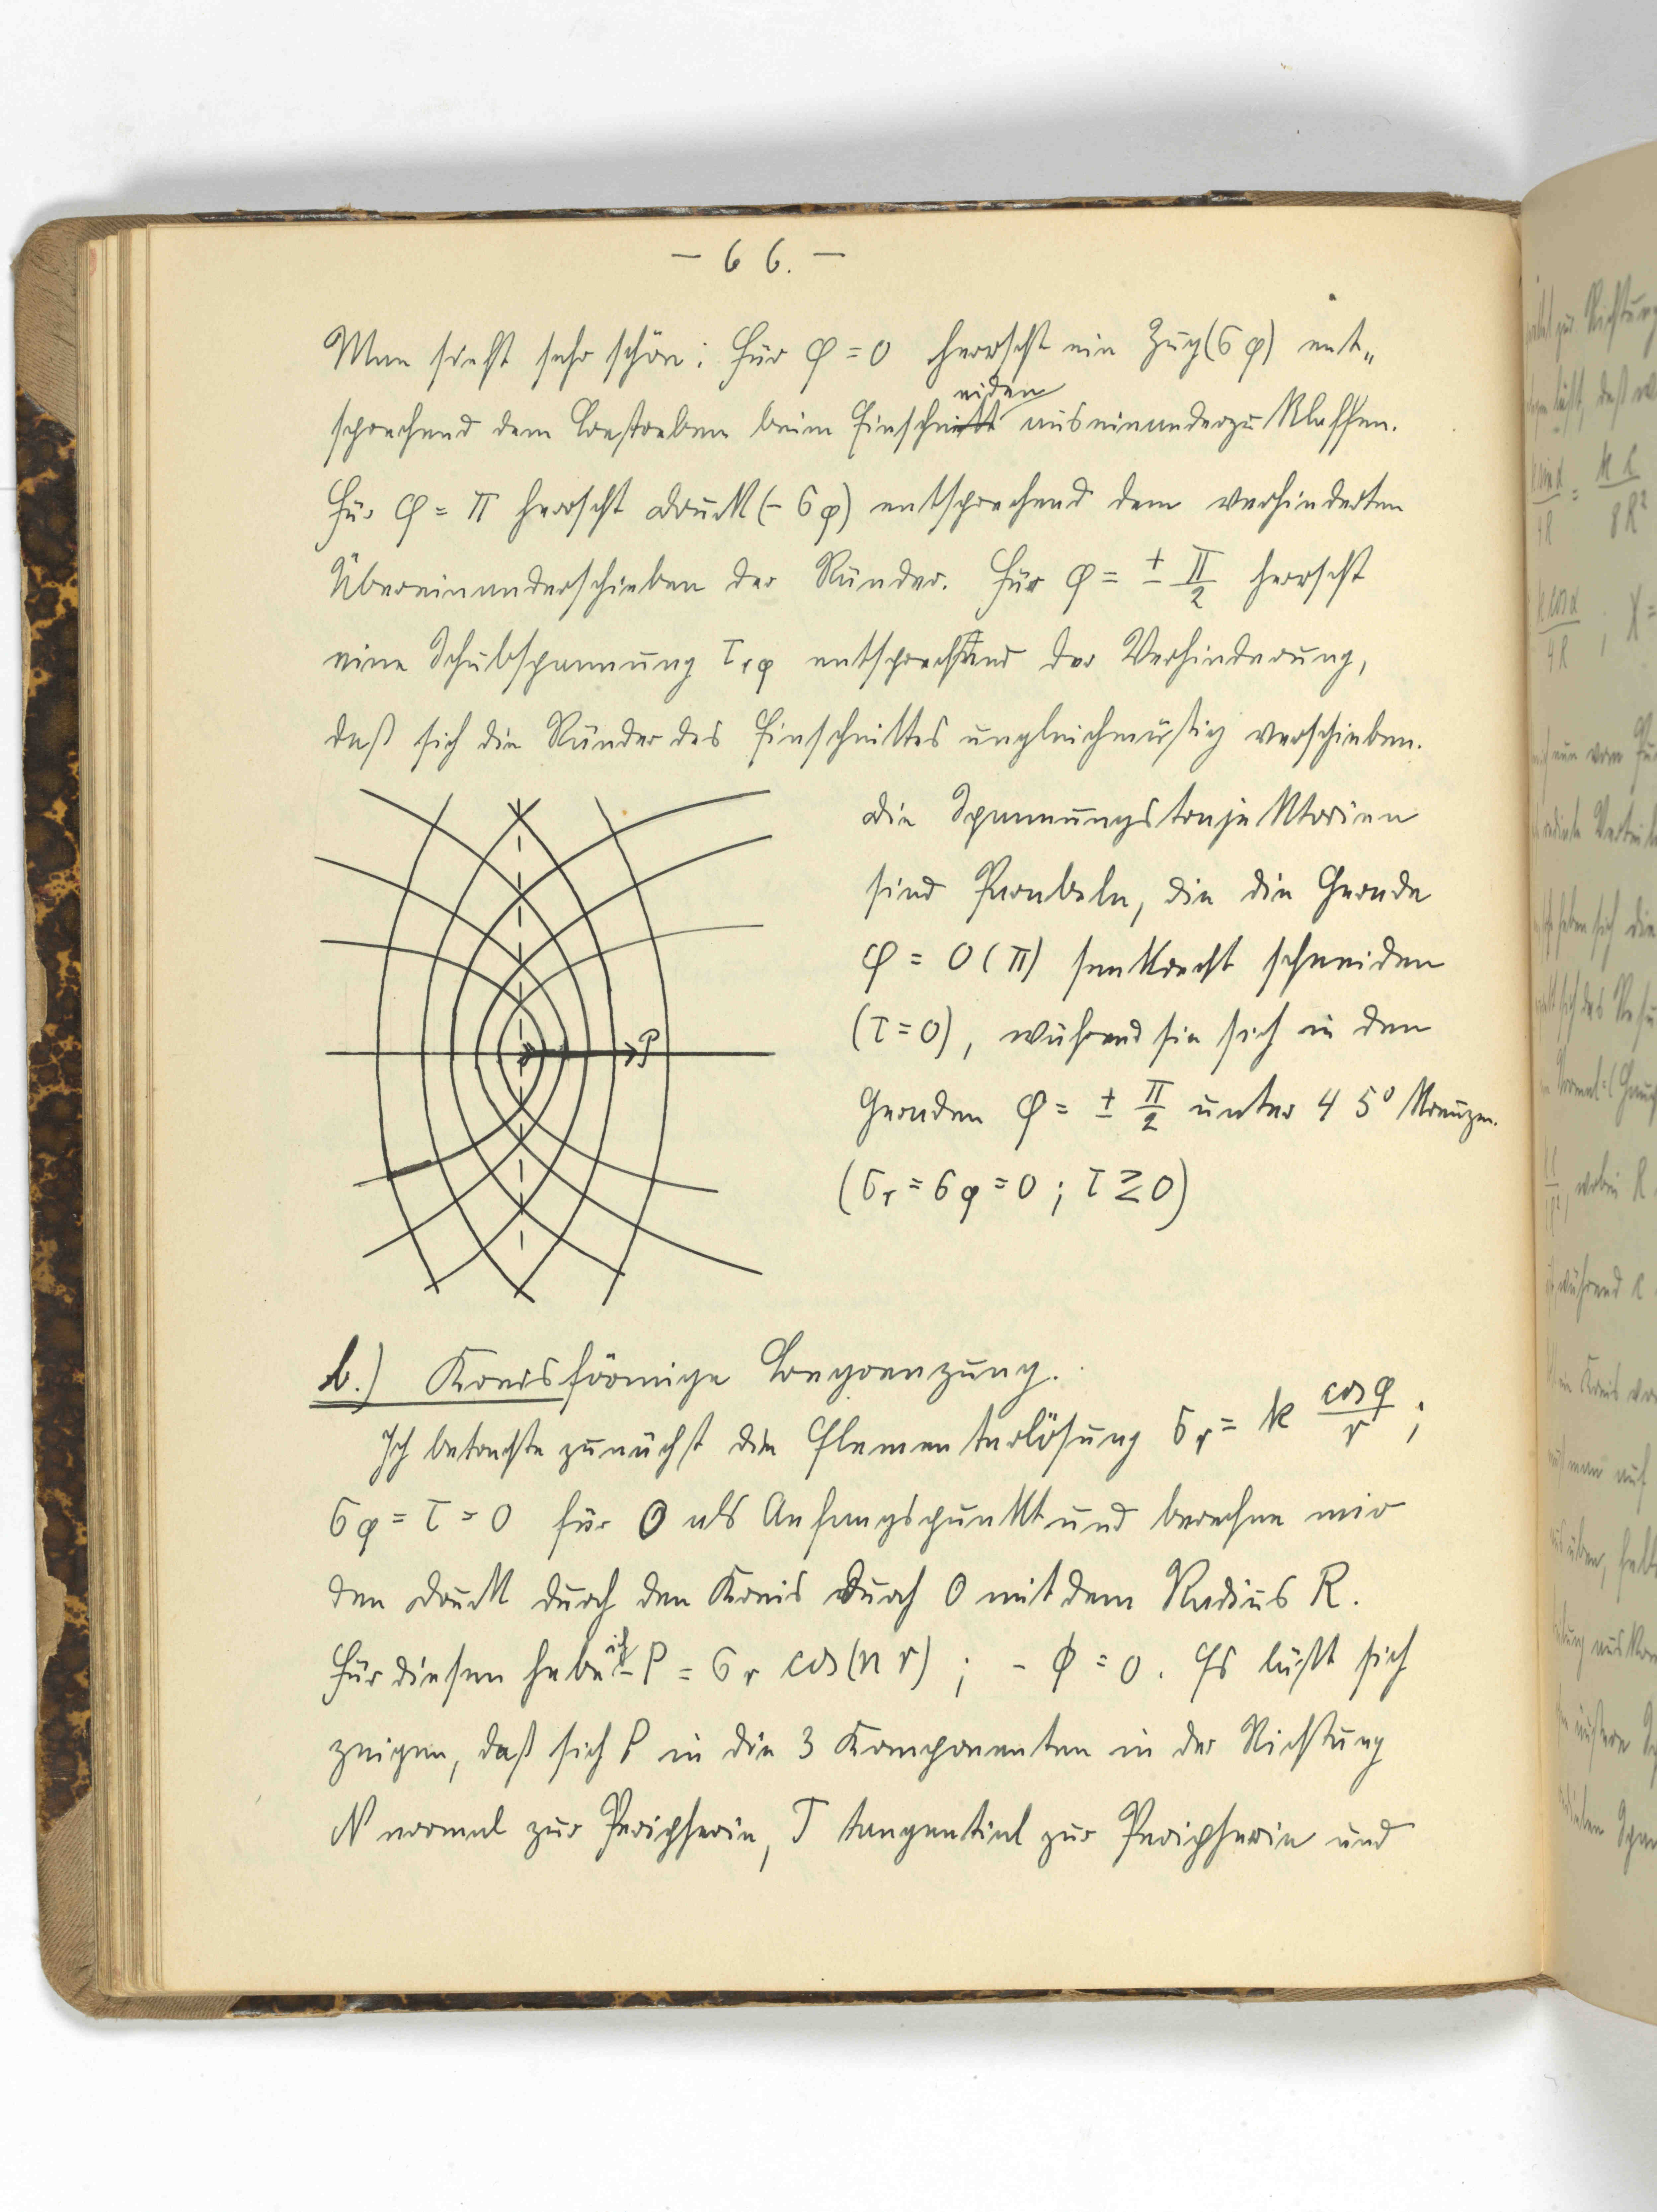 — 66. —
Man sieht sehr schön: Für φ = 0 herrscht ein Zug (σφ) ent„
niden
sprechend dem Bestreben beim Einschnitt auseinanderzuklaffen.
Für φ = π herrscht Druck (- σφ) entsprechend dem verhinderten
Übereinanderschieben der Ränder. Für φ = ± π/2 herrscht
eine Schubspannung τrφ entsprechend der Verhinderung,
daß sich die Ränder des Einschnittes ungleichmäßig verschieben.
Die Spannungstrajektorien
sind Parabeln, die die Gerade
φ = 0 (π) senkrecht schneiden
(τ = 0), während sie sich in den
Geraden φ = ± π/2 unter 45° kreuzen.
(σr = σφ = 0 ; τ ≷ 0)
P
b.) Kreisförmige Begrenzung.
Ich betrachte zunächst die Elementarlösung σr = k cosφ/r ;
σφ = τ = 0 für O als Anfangspunkt und berechne mir
den Druck durch den Kreis durch O mit dem Radius R.
Für diesen habe ich - P = σr cos(n r) ; - Φ = 0. Es läßt sich
zeigen, daß sich P in die 3 Komponenten in der Richtung
N normal zur Peripherie, T tangential zur Peripherie und